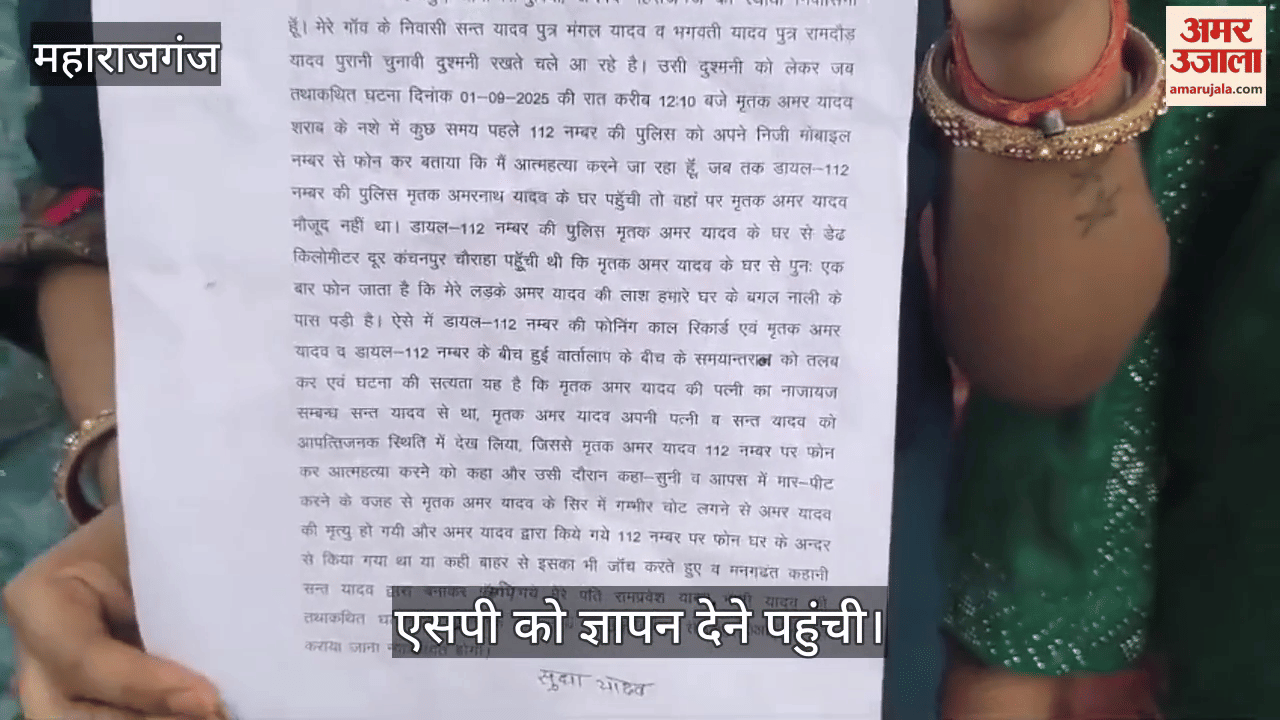 महाराजगंज
अमर
उजाला
amarujala.com
हूँ। मेरे गॉव के निवासी सन्त यादव पुत्र मंगल यादव व भगवती यादव पुत्र रामदौड़
यादव पुरानी चुनावी दुश्मनी रखते चले आ रहे है। उसी दुश्मनी को लेकर जब
तथाकथित घटना दिनांक 01-09-2025 की रात करीब 12:10 बजे मृतक अमर यादव
शराब के नशे में कुछ समय पहले 112 नम्बर की पुलिस को अपने निजी मोबाइल
नम्बर से फोन कर बताया कि मैं आत्महत्या करने जा रहा हूँ, जब तक डायल-112
नम्बर की पुलिस मृतक अमरनाथ यादव के घर पहुँची तो वहां पर मृतक अमर यादव
मौजूद नहीं था। डायल-112 नम्बर की पुलिस मृतक अमर यादव के घर से डेढ
किलोमीटर दूर कंचनपुर चौराहा पहुँची थी कि मृतक अमर यादव के घर से पुनः एक
बार फोन जाता है कि मेरे लड़के अमर यादव की लाश हमारे घर के बगल नाली के
पास पडी है। ऐसे में डायल-112 नम्बर की फोनिंग काल रिकार्ड एवं मृतक अमर
यादव व डायल-112 नम्बर के बीच हुई वार्तालाप के बीच के समयान्तराल को तलब
कर एवं घटना की सत्यता यह है कि मृतक अमर यादव की पत्नी का नाजायज
सम्बन्ध सन्त यादव से था, मृतक अमर यादव अपनी पत्नी व सन्त यादव को
आपत्तिजनक स्थिति में देख लिया, जिससे मृतक अमर यादव 112 नम्बर पर फोन
कर आत्महत्या करने को कहा और उसी दौरान कहा-सुनी व आपस में मार-पीट
करने के वजह से मृतक अमर यादव के सिर में गम्भीर चोट लगने से अमर यादव
की मृत्यु हो गयी और अमर यादव द्वारा किये गये 112 नम्बर पर फोन घर के अन्दर
से किया गया था या कही बाहर से इसका भी जॉच करते हुए व मनगढंत कहानी
सन्त यादव द्वारा बनाकर गये मेरे पति रामप्रवेश यादव
तथाकथित
कराया जाना होगी।
एसपी को ज्ञापन देने पहुंची।
यादव